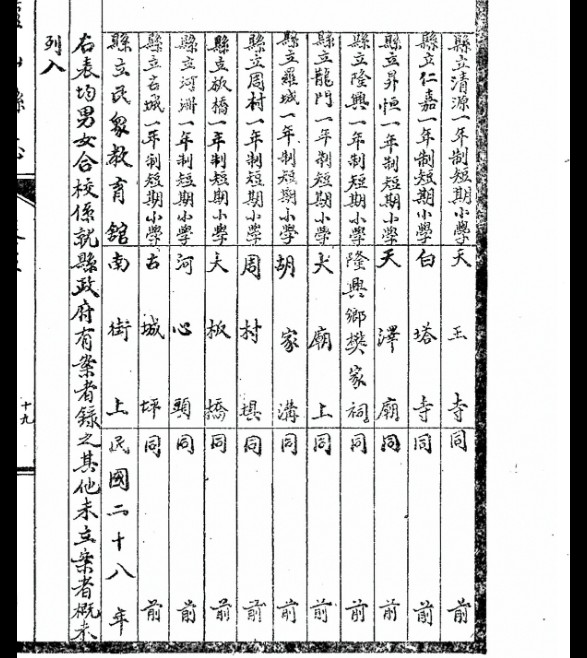 縣立清源一年制短期小學 天王寺 同前
縣立仁嘉一年制短期小學 白塔寺 同前
縣立昇恒一年制短期小學 天澤廟 同前
縣立隆興一年制短期小學 隆興鄉樊家祠 同前
縣立龍門一年制短期小學 大廟上 同前
縣立羅城一年制短期小學 胡家溝 同前
縣立周村一年制短期小學 周村 同前
縣立板橋一年制短期小學 大板橋 同前
縣立河洲一年制短期小學 河心頭 同前
縣立古城一年制短期小學 古城坪 同前
縣立民眾教育館 南街上 民國二十八年
右表均男女合校係就縣政府有案者錄之其他未立案者概未
列入
十九